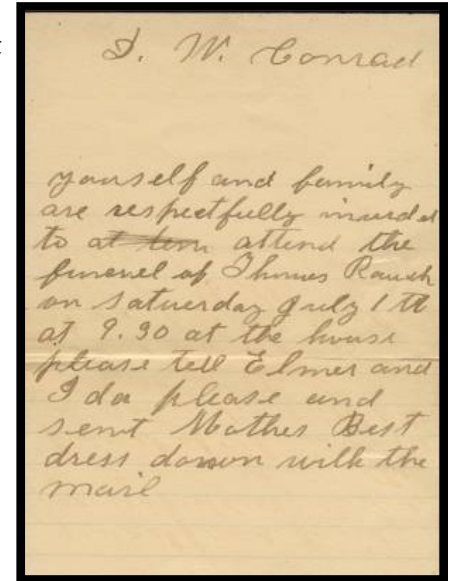 I. W. Conrad
yourself and family
are respectfully invided
to at tem attend the
funerel of Thomes Rauch
on Satuerday July 1 tt
at 9.30 at the house
please tell Elmer and
Ida please and
sent Mothes Best
dress down with the
mail